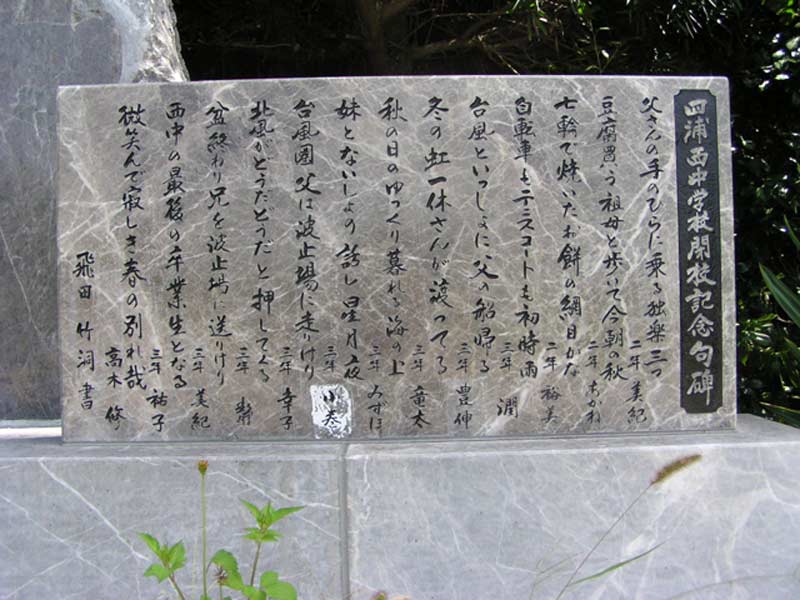 四浦西中学校閉校記念句碑
父さんの手のひらに乗る独楽三つ
二年 美紀
豆腐買う祖母と歩いて今朝の秋
二年 あかね
七輪で焼いたお餅の網目かな
二年 裕美
自転車もテニスコートも初時雨
三年 潤
台風といっしょに父の船帰る
三年 豊伸
冬の虹一休さんが渡ってる
三年 竜太
秋の日のゆっくり暮れる海の上
三年 みずほ
妹とないしょの話し星月夜
三年 小巻
台風圏父は波止場に走りけり
三年 幸子
北風がどうだどうだと押してくる
三年
盆終わり兄を波止場に送りけり
三年 美紀
西中の最後の卒業生となる
三年 祐子
微笑んで寂しき春の別れ哉
高木 修
飛田 竹洞 書